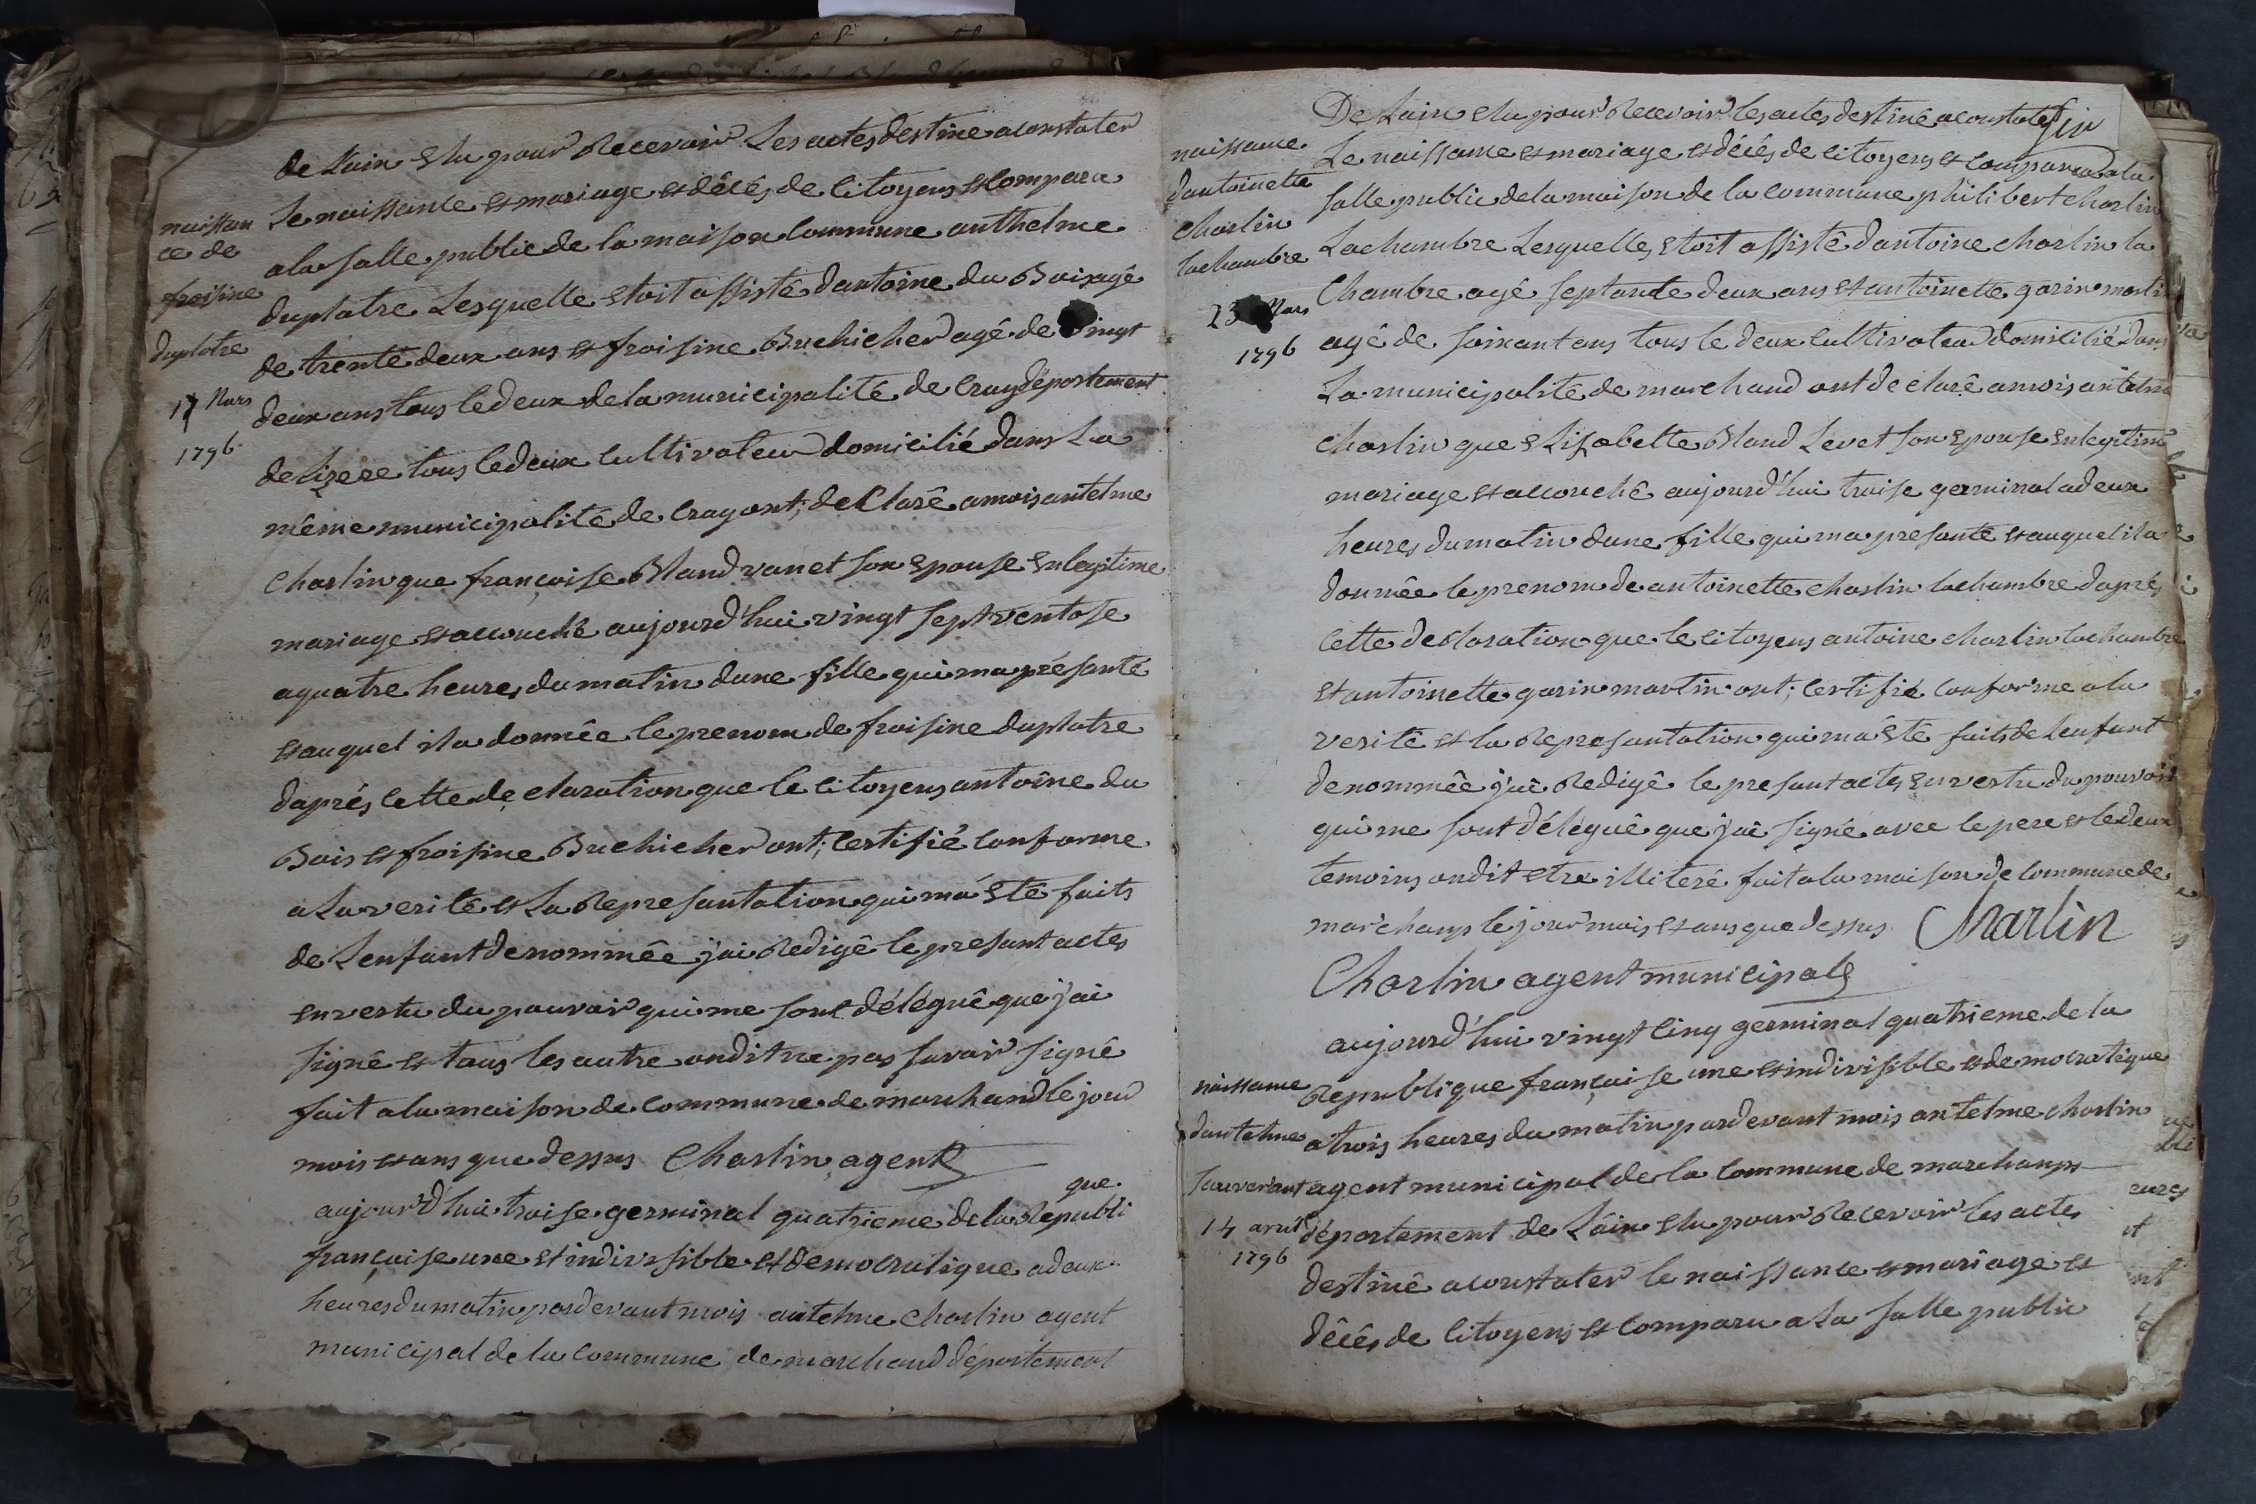 de Lain elu pour Recevoir Les actes destine a constater
naissan
ce de
froisine
duplatre
17 Mars
1796
Le naissance et mariage et décés de citoyens et compara
a la salle public de la maison commune anthelme
duplatre Lesquelle etoit assisté dantoine du Bois agé
de trente deux ans et froisine Buchicher agé de vingt
deux ans tous le deux de la municipalité de Cray département
de Lizere tous le deux cultivateur domicilié dans La
même municipalité de Cray ont; declaré a mois antelme
Charlin que françoise Bland vanet son epouse en legitime
mariage et accouché aujourd'hui vingt sept ventose
a quatre heures du matin dune fille qui ma présanté
et auquel il a donnée le prenom de froisine duplatre
daprés cette declaration que le citoyens antoine du
Bois et froisine Buchicher ont; certifié conforme
a La verité et La Represantation qui ma eté faits
de Lenfant denommée j'ai Redigé le presant actes
en vertu du pouvoir qui me sont délégué que j'ai
signé et tous les autre on dit ne pas savoir signé
fait a la maison de commune de marchand le jour
mois et ans que dessus Charlin agent
aujourd'hui traise germinal quatrieme de la Republi
que
française une et indivisible et democratique a deux
heures du matin pardevant mois antelme Charlin agent
municipal de la commune de marchand département
De Lain elu pour Recevoir les actes destiné a constater
naissance
dantoinette
Charlin
lachambre
23 Mars
1796
Le naissance et mariage et décés de citoyens et comparu a la
salle public de la maison de la commune philibert charlin
Lachambre Lesquelles etoit assisté dantoine charlin la
Chambre agé septante deux ans et antoinette garin marti
agé de soixant ans tous le deux cultivateur domicilié dans
La municipalité de marchand ont declaré a mois antelme
Charlin que Elizabette Bland Levet son epouse en legitime
mariage et accouché aujourd'hui traise germinal a deux
heures du matin dune fille qui ma presanté et auquel il a
donnée le prenom de antoinette charlin lachambre daprés
cette declaration que le citoyens antoine charlin lachambre
et antoinette garin martin ont; certifié conforme a la
verité et la Represantation qui ma eté faits de lenfant
denommée j'ai Redigé le presant actes en vertu du pouvoir
qui me sont délégué que j'ai signé avec le pere et le deux
temoins on dit etre illiteré fait a la maison de commune de
marchamp le jour mois et ans que dessus Charlin
Charlin agent municipal
aujourd'hui vingt cinq germinal quatrieme de la
naissance
dantelme
14 avril
1796
Republique française une et indivisible et democratique
a trois heures du matin pardevant mois antelme charlin
agent municipal de la commune de marchamps
département de Lain elu pour Recevoir les actes
destiné a constater le naissance et mariage et
décés de citoyens et comparu a La salle public